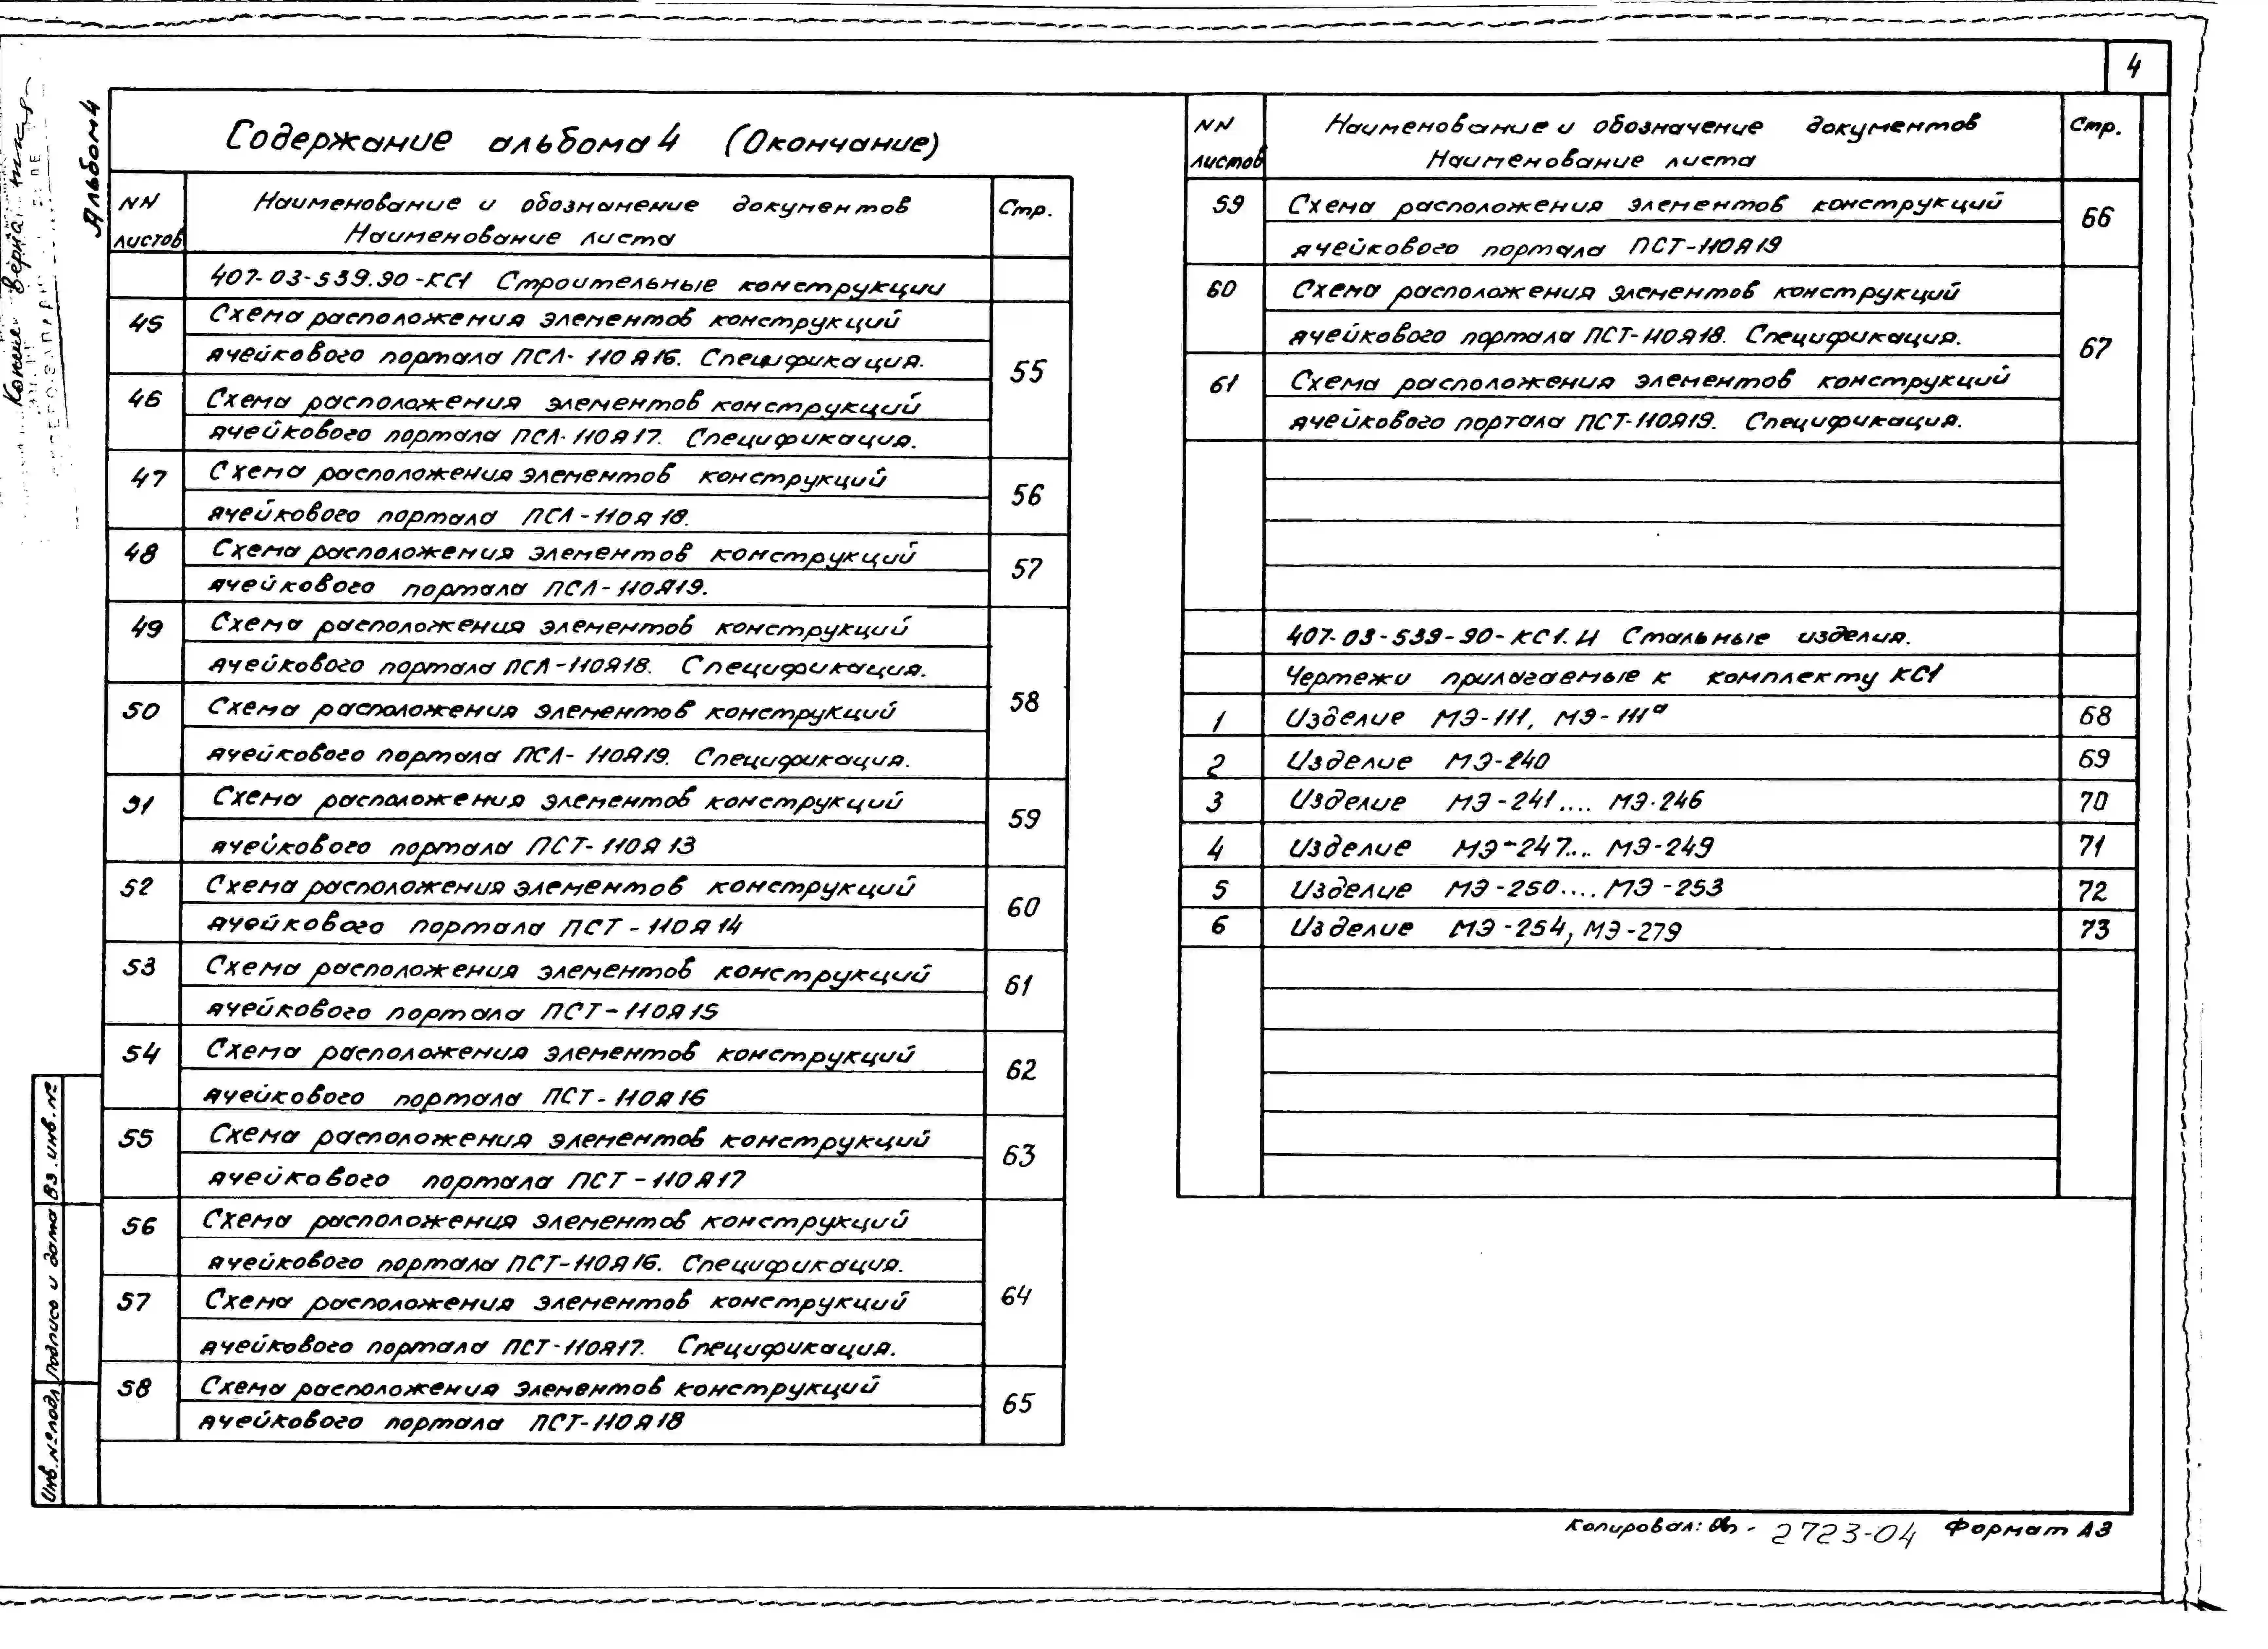 4
Альбом 4
Содержание альбома 4 (Окончание)
NN листов
Наименование и обозначение документов
Наименование листа
Стр.
407-03-539.90-КС1 Строительные конструкции
45 Схема расположения элементов конструкций
ячейкового портала ПСЛ-110Я16. Спецификация.
55
46 Схема расположения элементов конструкций
ячейкового портала ПСЛ-110Я17. Спецификация.
47 Схема расположения элементов конструкций
ячейкового портала ПСЛ-110Я18.
56
48 Схема расположения элементов конструкций
ячейкового портала ПСЛ-110Я19.
57
49 Схема расположения элементов конструкций
ячейкового портала ПСЛ-110Я18. Спецификация.
58
50 Схема расположения элементов конструкций
ячейкового портала ПСЛ-110Я19. Спецификация.
51 Схема расположения элементов конструкций
ячейкового портала ПСТ-110Я13
59
52 Схема расположения элементов конструкций
ячейкового портала ПСТ-110Я14
60
53 Схема расположения элементов конструкций
ячейкового портала ПСТ-110Я15
61
54 Схема расположения элементов конструкций
ячейкового портала ПСТ-110Я16
62
55 Схема расположения элементов конструкций
ячейкового портала ПСТ-110Я17
63
56 Схема расположения элементов конструкций
ячейкового портала ПСТ-110Я16. Спецификация.
64
57 Схема расположения элементов конструкций
ячейкового портала ПСТ-110Я17. Спецификация.
58 Схема расположения элементов конструкций
ячейкового портала ПСТ-110Я18
65
NN листов
Наименование и обозначение документов
Наименование листа
Стр.
59 Схема расположения элементов конструкций
ячейкового портала ПСТ-110Я19
66
60 Схема расположения элементов конструкций
ячейкового портала ПСТ-110Я18. Спецификация.
67
61 Схема расположения элементов конструкций
ячейкового портала ПСТ-110Я19. Спецификация.
407-03-539-90-КС1.И Стальные изделия.
Чертежи прилагаемые к комплекту КС1
1 Изделие МЭ-111, МЭ-111ª 68
2 Изделие МЭ-240 69
3 Изделие МЭ-241.... МЭ-246 70
4 Изделие МЭ-247... МЭ-249 71
5 Изделие МЭ-250.... МЭ-253 72
6 Изделие МЭ-254, МЭ-279 73
Вз.инв.№
Подпись и дата
Инв.№подл.
Копировал: 2723-04 Формат А3